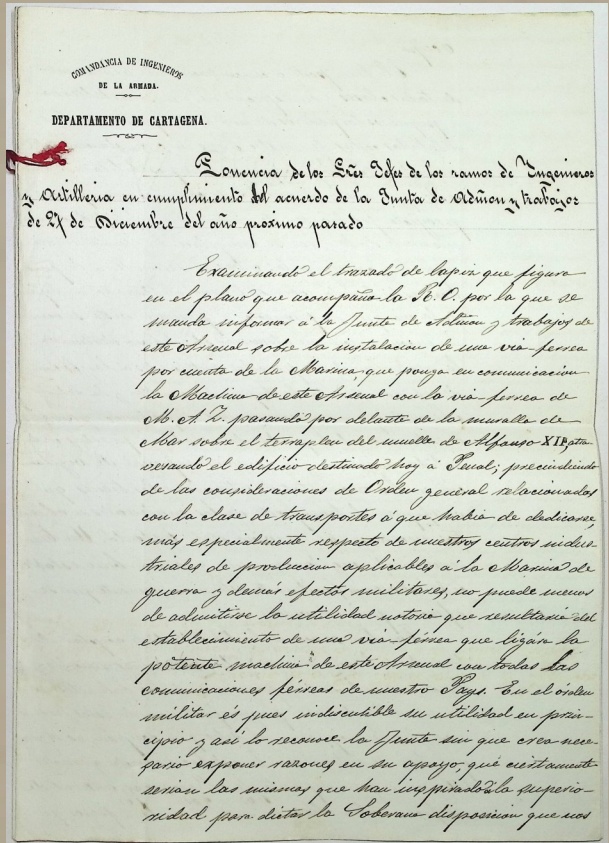 COMANDANCIA DE INGENIEROS
DE LA ARMADA.
DEPARTAMENTO DE CARTAGENA.
Ponencia de los Sres Gefes de los ramos de Yngenieros
y Artilleria en cumplimiento del acuerdo de la Junta de Admon y trabajos
de 27 de Diciembre del año proximo pasado
Examinando el trazado de lapiz que figura
en el plano que acompaña la R. O. por la que se
manda informar á la Junta de Admon y trabajos de
este Arsenal sobre la instalacion de una via ferrea
por cuenta de la Marina, que ponga en comunicacion
la Machina de este Arsenal con la via ferrea de
M. A. Z. pasando por delante de la muralla de
Mar sobre el terraplen del muelle de Alfonso XII, atra
vesando el edificio destinado hoy á Penal; precindiendo
de las consideraciones de Orden general relacionadas
con la clase de transportes á que habia de dedicarse,
más especialmente respecto de nuestros centros indus-
triales de produccion aplicables á la Marina de
guerra y demás efectos militares, no puede menos
de admitirse la utilidad notoria que resultaria del
establecimiento de una via férrea que ligára la
potente machina de este Arsenal con todas las
comunicaciones férreas de nuestro Pays. En el orden
militar és pues indiscutible su utilidad en prin-
cipio y asi lo reconoce la Junta sin que crea nece-
sario exponer razones en su apoyo, que ciertamente
serian las mismas que han inspirado á la superio-
ridad para dictar la Soberana disposicion que nos